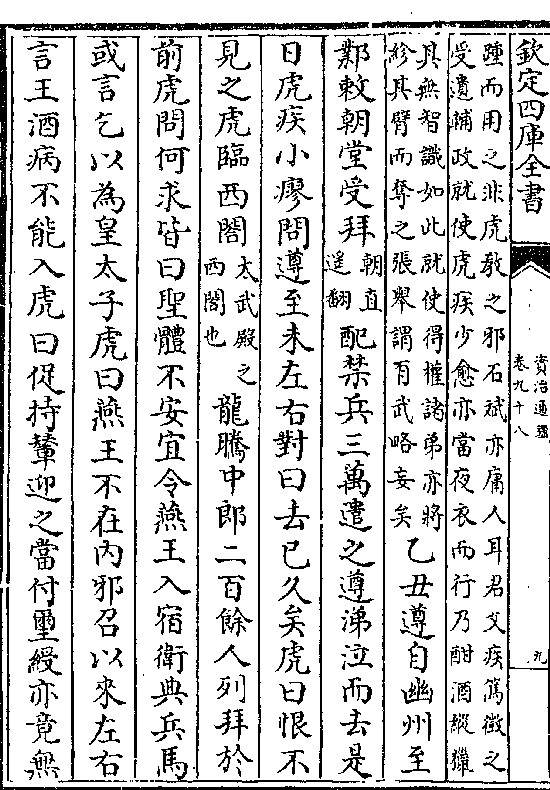 欽定四庫全書
資治通鑑
卷九十八
九
踵而用之非虎敎之邪石斌亦庸人耳君父疾篤徵之
受遺輔政就使虎疾少愈亦當夜衣而行乃酣酒縱獵
其無智識如此就使得權諸弟亦將
紾其臂而奪之張舉謂有武略妄矣
乙丑遵自幽州至
鄴敕朝堂受拜朝直遥翻配禁兵三萬遣之遵涕泣而去是
日虎疾小瘳問遵至未左右對曰去已久矣虎曰恨不
見之虎臨西閤太武殿之西閤也龍騰中郎二百餘人列拜於
前虎問何求皆曰聖體不安宜令燕王入宿衛典兵馬
或言乞以為皇太子虎曰燕王不在內邪召以來左右
言王酒病不能入虎曰促持輦迎之當付璽綬亦竟無